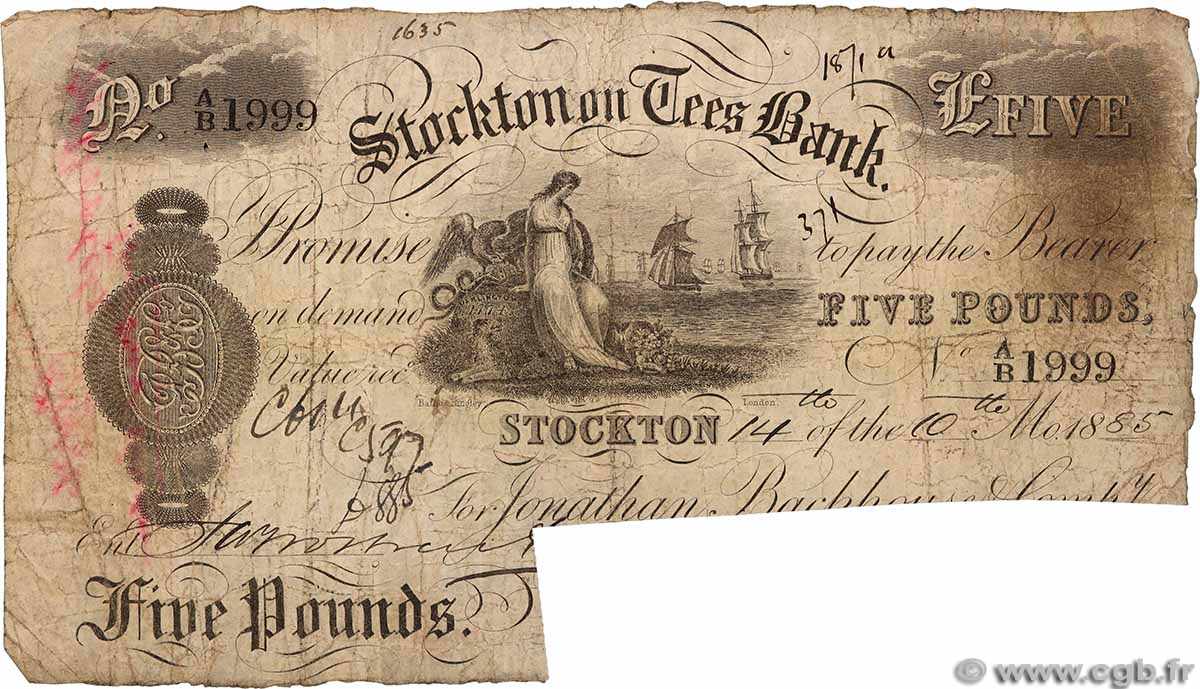 1635
18/1 a
No. A/B 1999
Stockton on Tees Bank.
£FIVE
371
Promise to pay the Bearer
on demand FIVE POUNDS,
Value recd. No A/B 1999
London.
STOCKTON 14th of the 10th Mo. 1885
C597
For Jonathan Backhouse & Compy
Ent
Five Pounds.
© www.cgb.fr